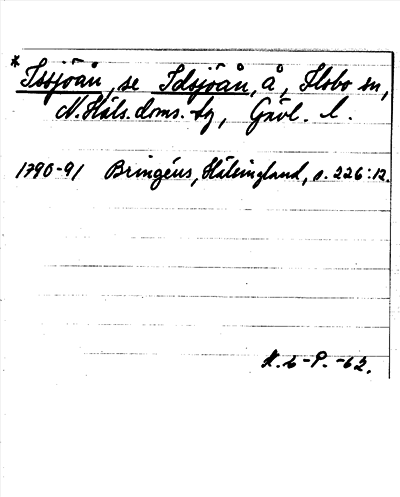 * Issjöån, se Idsjöån, å, Ilsbo sn,
N. Häls. doms. tg, Gävl. l.
1790-91 Bringéus, Hälsingland, s. 226:12.
K. L-P. -62.